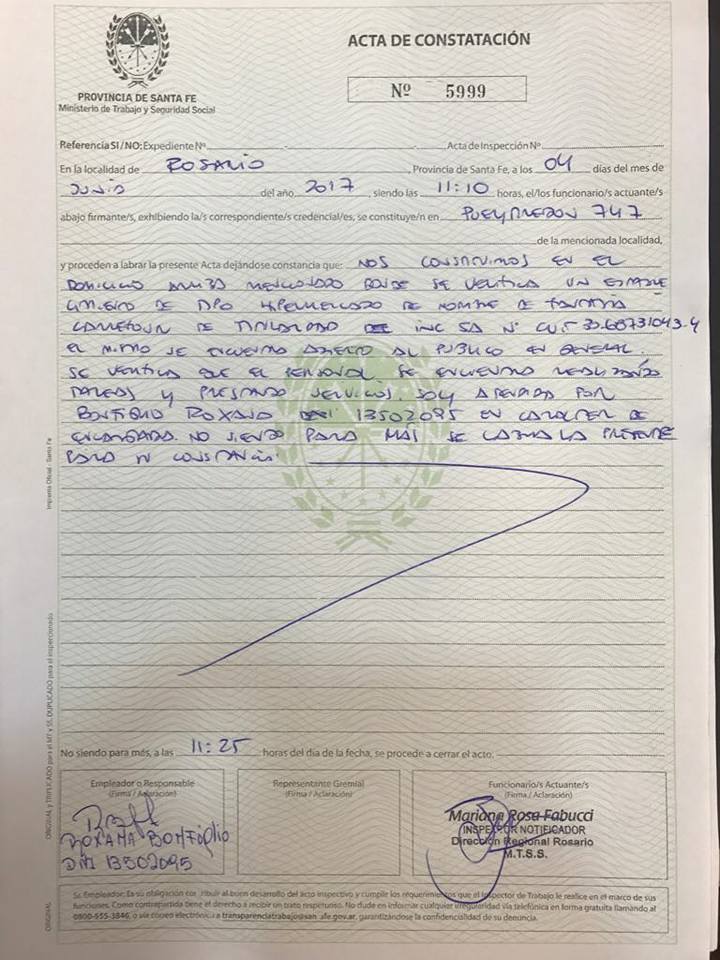 ACTA DE CONSTATACIÓN
Nº 5999
PROVINCIA DE SANTA FE
Ministerio de Trabajo y Seguridad Social
Referencia SI / NO: Expediente Nº - Acta de Inspección Nº
En la localidad de ROSARIO, Provincia de Santa Fe, a los 04 días del mes de
JUNIO del año 2017, siendo las 11:10 horas, el/los funcionario/s actuante/s
abajo firmante/s, exhibiendo la/s correspondiente/s credencial/es, se constituye/n en PUEYRREDON 747
de la mencionada localidad,
y proceden a labrar la presente Acta dejándose constancia que: NOS CONSTITUIMOS EN EL
DOMICILIO ARRIBA MENCIONADO DONDE SE VERIFICA UN ESTABLE
CIMIENTO DE TIPO HIPERMERCADO DE NOMBRE DE FANTASIA
CARREFOUR DE TITULARIDAD DE INC SA Nº CUIT 30-68731043-4
EL MISMO SE ENCUENTRA ABIERTO AL PUBLICO EN GENERAL.
SE VERIFICA QUE EL PERSONAL SE ENCUENTRA REALIZANDO
TAREAS Y PRESTANDO SERVICIOS. SOY ATENDIDA POR
BONFIGLIO ROXANA DNI 13502095 EN CARACTER DE
ENCARGADA. NO SIENDO PARA MÁS SE LABRA LA PRESENTE
PARA CONSTANCIA.
No siendo para más, a las 11:25 horas del día de la fecha, se procede a cerrar el acto.
Empleador o Responsable
(Firma / Aclaración)
ROXANA BONFIGLIO
DNI 13502095
Representante Gremial
(Firma / Aclaración)
Funcionario/s Actuante/s
(Firma / Aclaración)
Mariana Rosa Fabucci
INSPECTOR NOTIFICADOR
Dirección Regional Rosario
M.T.S.S.
Sr. Empleador: Es su obligación contribuir al buen desarrollo del acto inspectivo y cumplir los requerimientos que el Inspector de Trabajo le realice en el marco de sus
funciones. Como contrapartida tiene el derecho a recibir un trato respetuoso. No dude en informar cualquier irregularidad vía telefónica en forma gratuita llamando al
0800-555-3846, o vía correo electrónico a transparenciatrabajo@santafe.gov.ar, garantizándose la confidencialidad de su denuncia.
Imprenta Oficial - Santa Fe
ORIGINAL y TRIPLICADO para el MT y SS. DUPLICADO para el inspeccionado
ORIGINAL